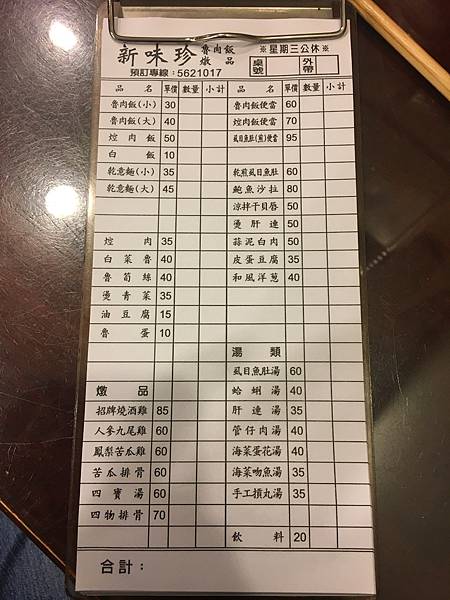 新味珍 魯肉飯 燉品
※星期三公休※
預訂專線：5621017
桌號 外帶
品名 單價 數量 小計 品名 單價 數量 小計
魯肉飯(小) 30 魯肉飯便當 60
魯肉飯(大) 40 焢肉飯便當 70
焢肉飯 50 虱目魚肚(煎)便當 95
白飯 10
乾意麵(小) 35 乾煎虱目魚肚 60
乾意麵(大) 45 鮑魚沙拉 80
涼拌干貝唇 50
燙肝連 50
焢肉 35 蒜泥白肉 50
白菜魯 40 皮蛋豆腐 35
魯筍絲 40 和風洋蔥 40
燙青菜 35
油豆腐 15
魯蛋 10
湯類
虱目魚肚湯 60
燉品 蛤蜊湯 40
招牌燒酒雞 85 肝連湯 35
人參九尾雞 60 管仔肉湯 40
鳳梨苦瓜雞 60 海菜蛋花湯 40
苦瓜排骨 60 海菜吻魚湯 35
四寶湯 60 手工摃丸湯 35
四物排骨 70
飲料 20
合計：